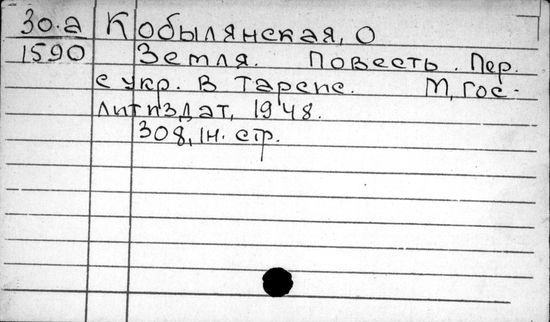 30.a Кобылянская, О
1590 Земля. Повесть. Пер.
с укр. В Тарсис. М, Гос-
литиздат, 1948.
308, 1н. стр.